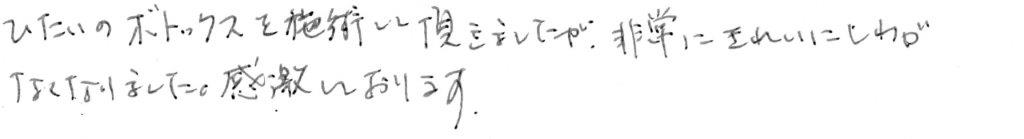 ひたいのボトックスを施術して頂きましたが、非常にきれいにしわが
なくなりました。感激しております。